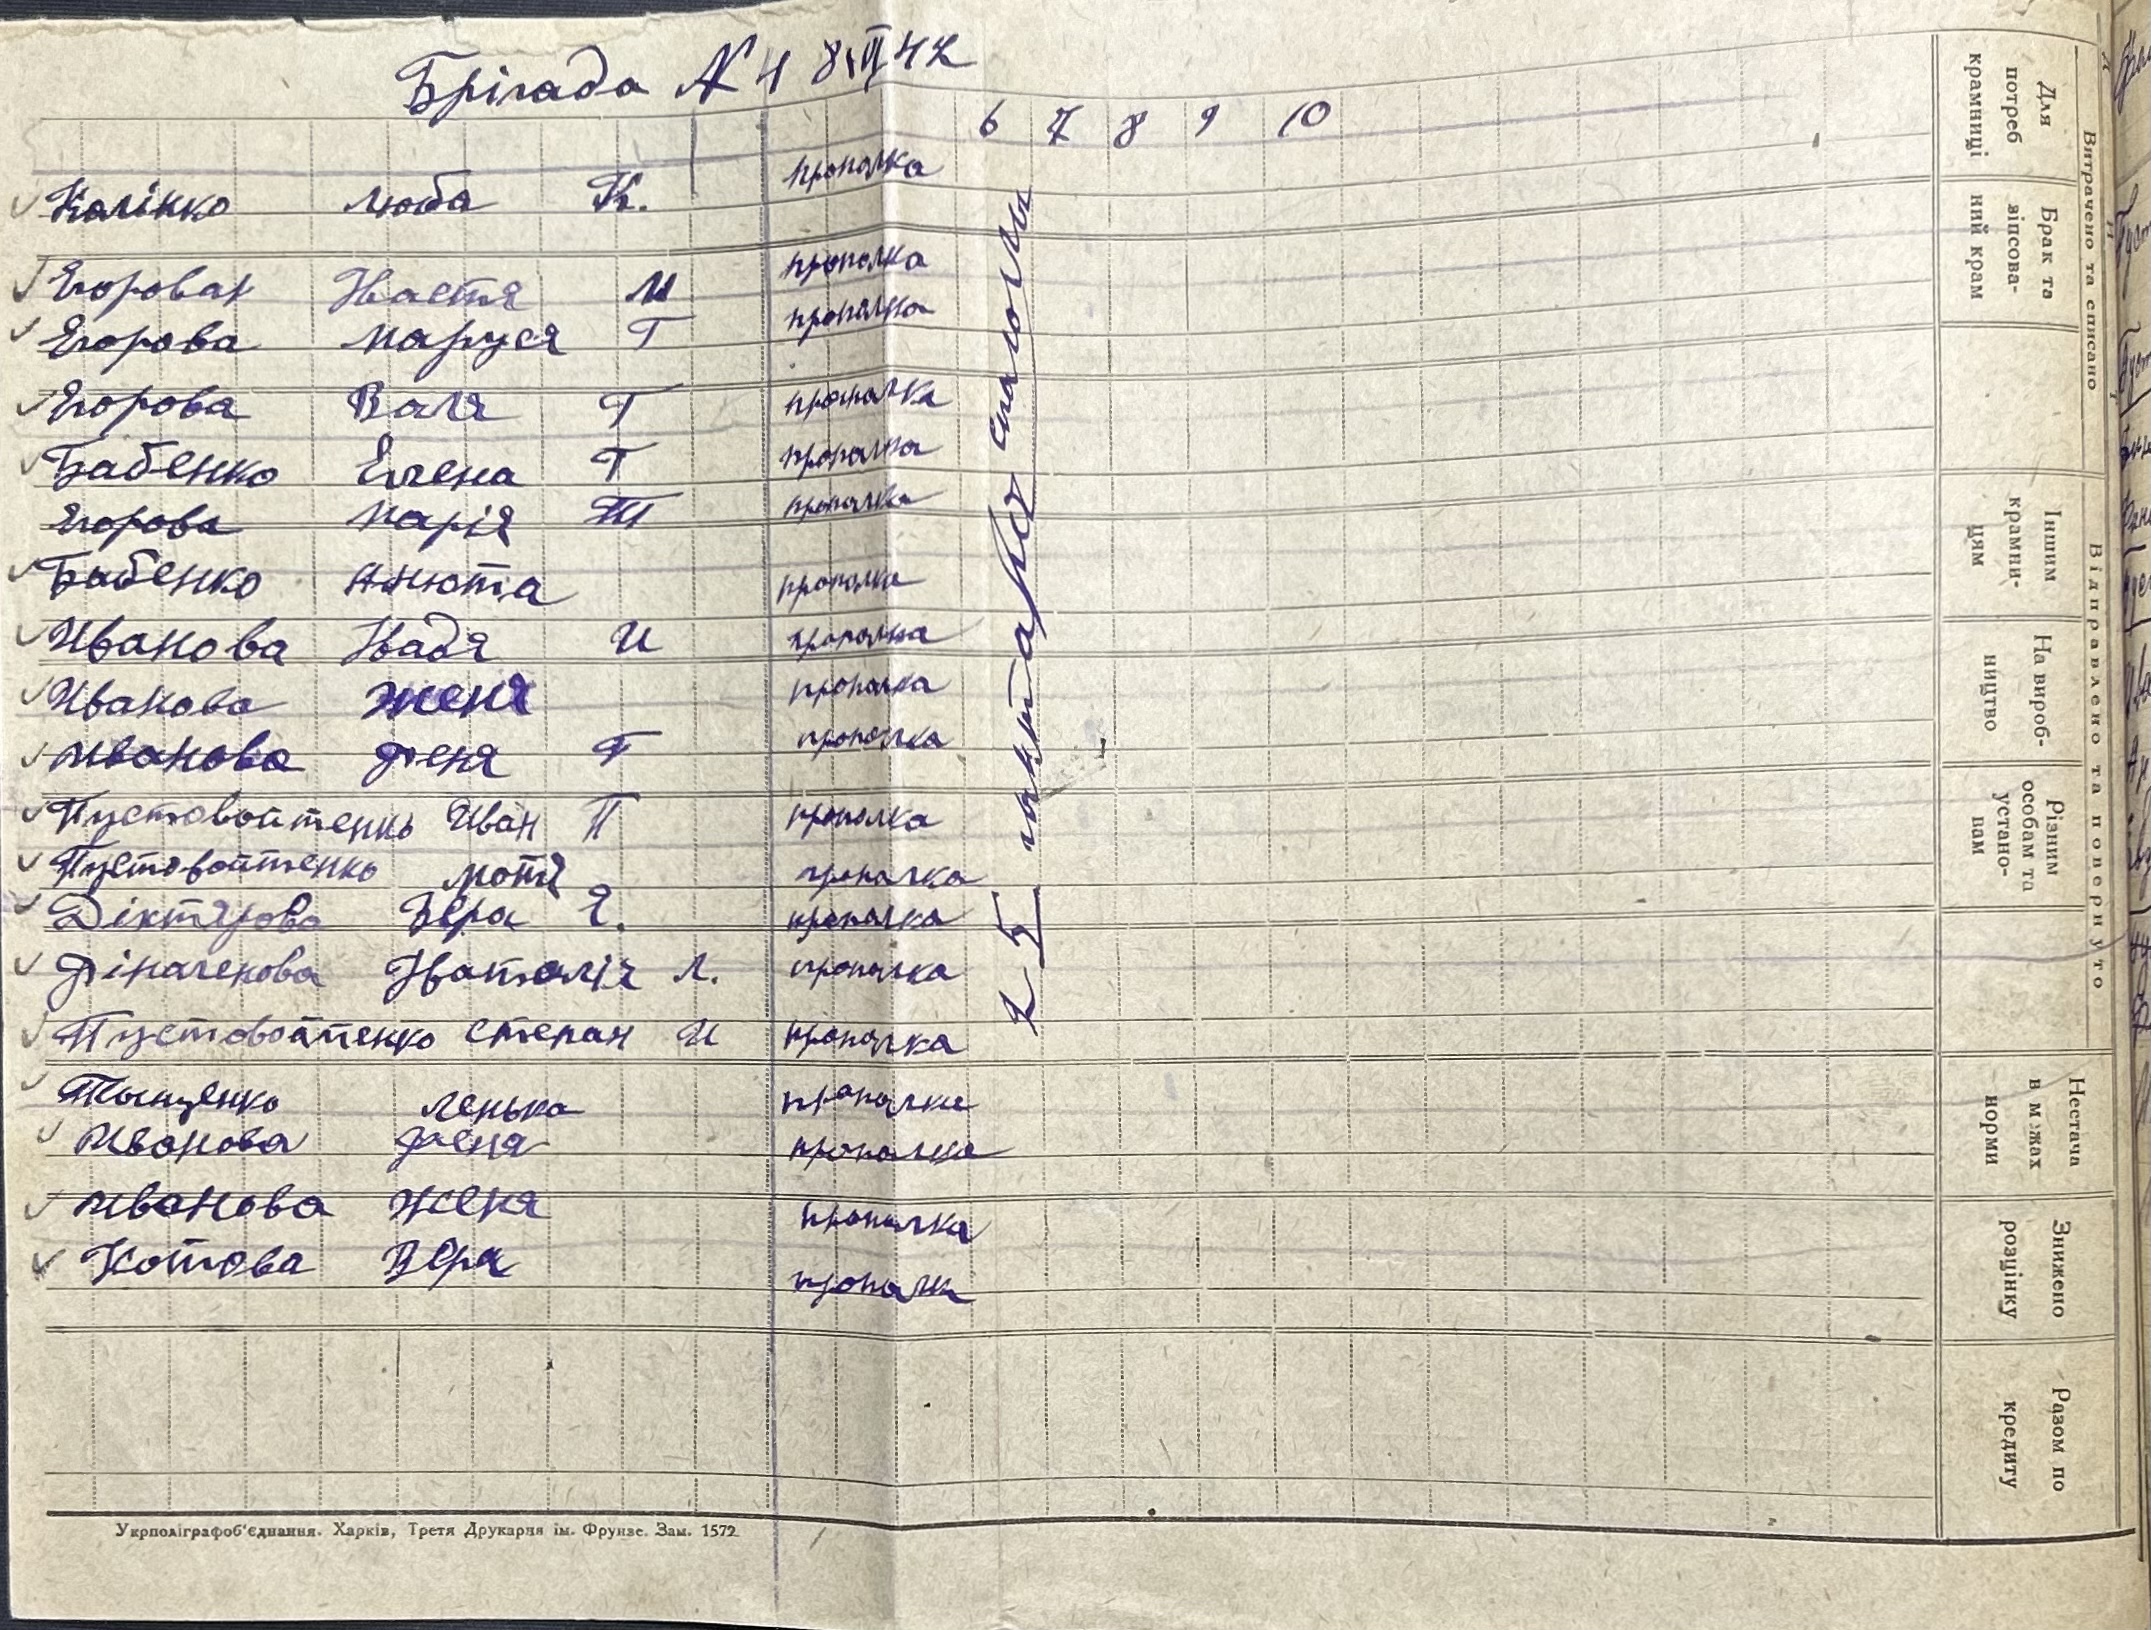 Брігада № 4 8.VI 42
6 7 8 9 10
Калінко Люба К. прополка
Егорова Настя И прополка
Егорова Маруся Г прополка
Егорова Валя Г прополка
Бабенко Елена Г прополка
Егорова Марія прополка
Бабенко Анюта прополка
Иванова Надя И прополка
Иванова Женя прополка
Иванова Феня Г прополка
Пустовойтенко Иван П прополка
Пустовойтенко Мотя прополка
Діктярова Вера Я. прополка
Наталія Л. прополка
Пустовойтенко Степан И прополка
Ленька прополка
Иванова Феня прополка
Иванова Женя прополка
Котова Вера прополка
Укрполіграфоб'єднання. Харків, Третя Друкарня ім. Фрунзе. Зам. 1572
Витрачено та списано
Для потреб крамниці
Брак та зіпсований крам
Відправлено та повернуто
Іншим крамницям
На виробництво
Різним особам та установам
Нестача в межах норми
Знижено розцінку
Разом по кредиту